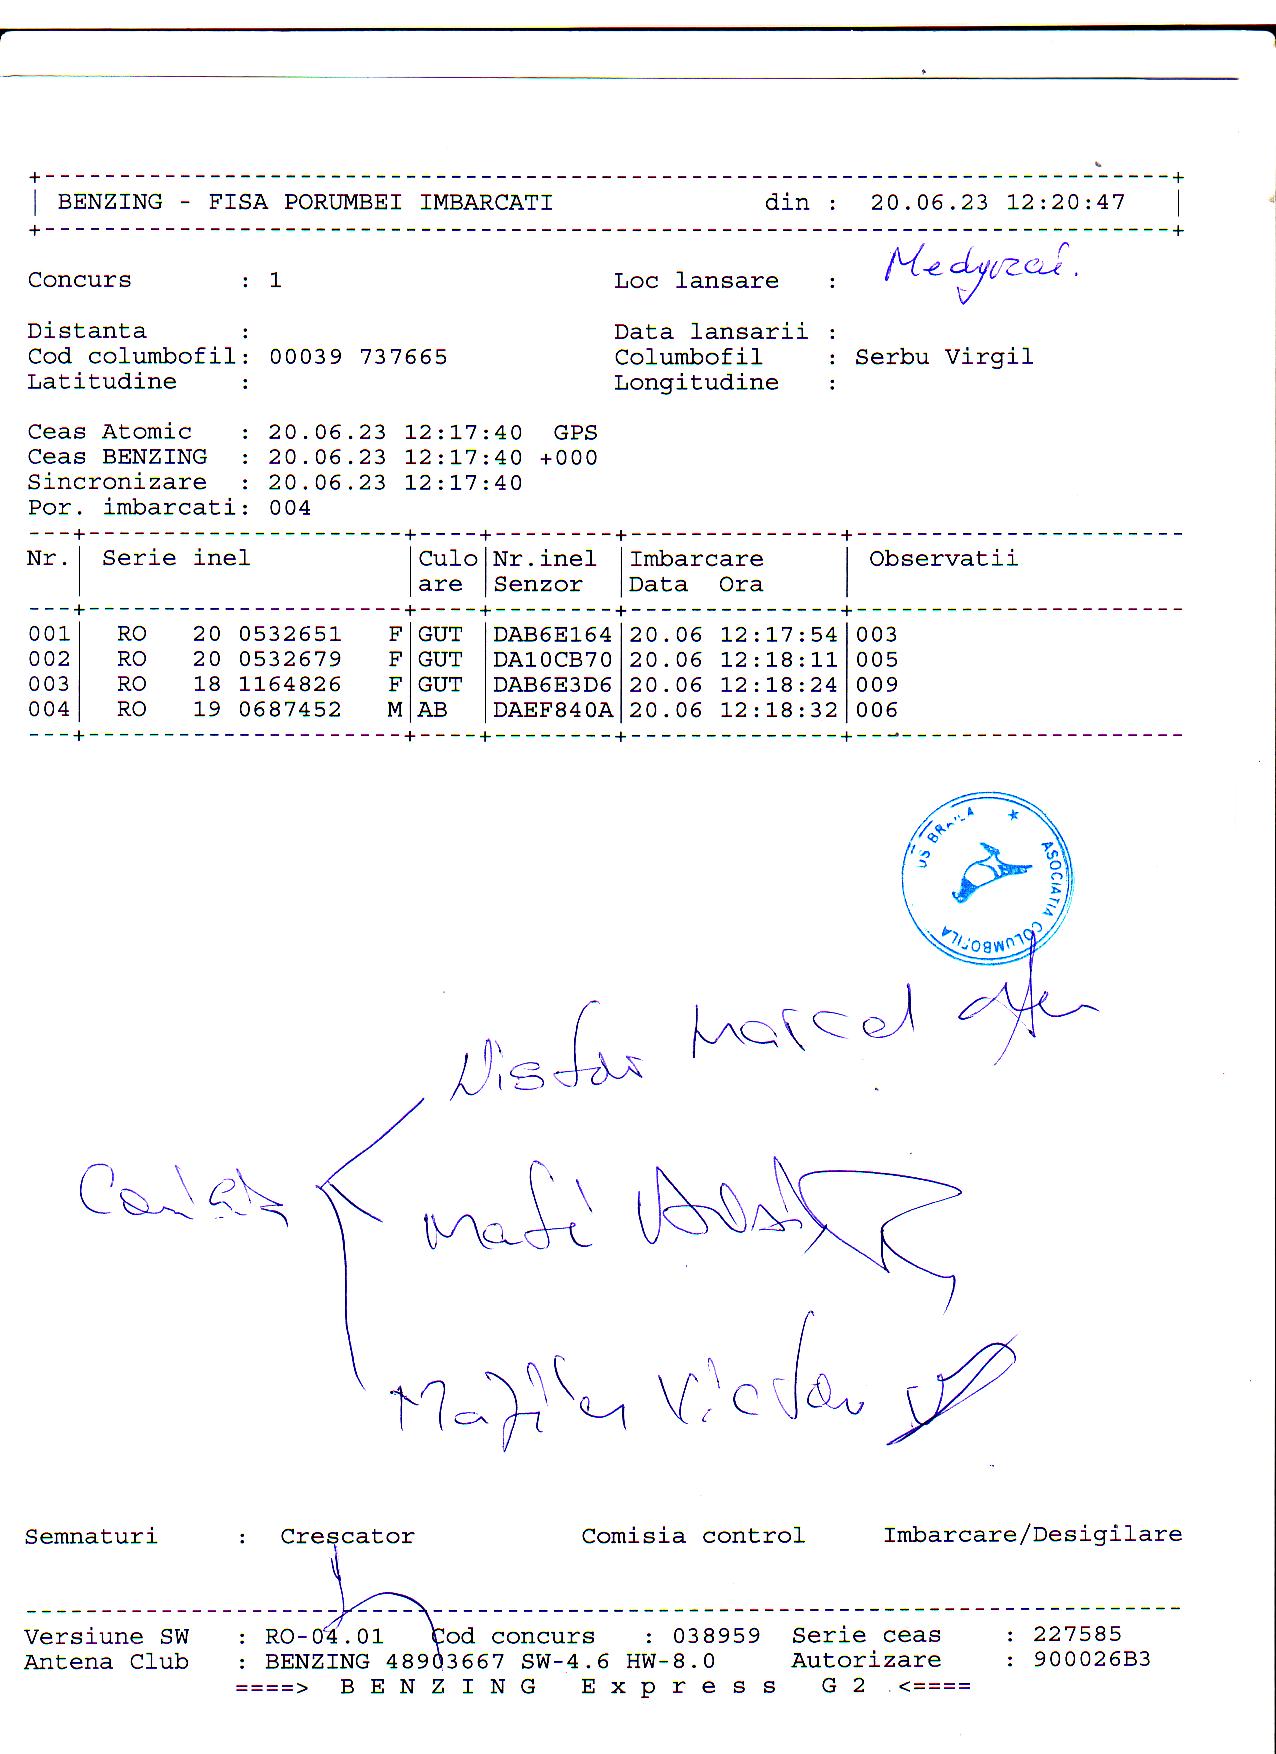 BENZING - FISA PORUMBEI IMBARCATI din : 20.06.23 12:20:47
Concurs : 1 Loc lansare :
Distanta : Data lansarii :
Cod columbofil: 00039 737665 Columbofil : Serbu Virgil
Latitudine : Longitudine :
Ceas Atomic : 20.06.23 12:17:40 GPS
Ceas BENZING : 20.06.23 12:17:40 +000
Sincronizare : 20.06.23 12:17:40
Por. imbarcati: 004
Nr. Serie inel Culo Nr.inel Imbarcare Observatii
are Senzor Data Ora
001 RO 20 0532651 F GUT DAB6E164 20.06 12:17:54 003
002 RO 20 0532679 F GUT DA10CB70 20.06 12:18:11 005
003 RO 18 1164826 F GUT DAB6E3D6 20.06 12:18:24 009
004 RO 19 0687452 M AB DAEF840A 20.06 12:18:32 006
ASOCIATIA COLUMBOFILA
Marcel
Victor
Semnaturi : Crescator Comisia control Imbarcare/Desigilare
Versiune SW : RO-04.01 Cod concurs : 038959 Serie ceas : 227585
Antena Club : BENZING 48903667 SW-4.6 HW-8.0 Autorizare : 900026B3
====> B E N Z I N G E x p r e s s G 2 <====